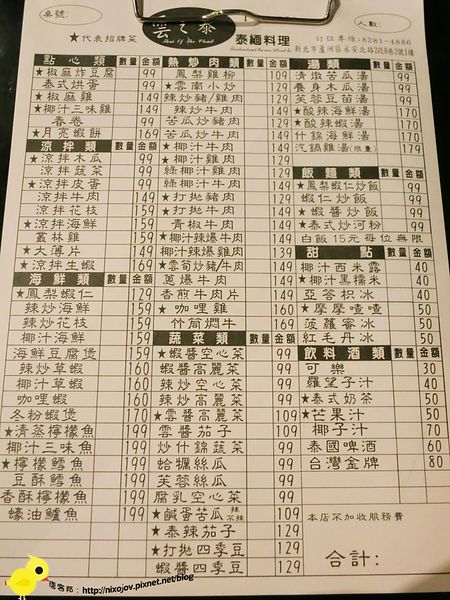 桌號:
人數:
雲之泰
泰緬料理
★代表招牌菜
訂位專線:8281-4886
新北市蘆洲區永安北路2段8巷2號1樓
點心類 數量 金額
★椒麻炸豆腐 99
泰式烘蛋 99
★椒麻雞 149
★椰汁三味雞 149
春卷 99
★月亮蝦餅 169
涼拌類 數量 金額
★涼拌木瓜 99
涼拌蔬菜 99
★涼拌皮蛋 99
涼拌牛肉 159
涼拌花枝 159
★涼拌海鮮 159
叢林雞 159
★大薄片 149
★涼拌生蝦 169
海鮮類 數量 金額
★鳳梨蝦仁 129
辣炒海鮮 159
辣炒花枝 159
椰汁海鮮 159
海鮮豆腐煲 159
辣炒草蝦 160
椰汁草蝦 160
咖哩蝦 160
冬粉蝦煲 170
★清蒸檸檬魚 199
椰汁三味魚 199
★檸檬鱈魚 199
豆酥鱈魚 199
香酥檸檬魚 199
蠔油鱸魚 199
熱炒肉類 數量 金額
鳳梨雞柳
★雲南小炒
辣炒豬/雞肉
辣炒牛肉
苦瓜炒豬肉
苦瓜炒牛肉
★椰汁牛肉
★椰汁雞肉
綠椰汁雞肉
綠椰汁牛肉
★打拋豬肉
★打拋牛肉
青椒牛肉
★椰汁辣爆牛肉
★椰汁辣爆雞肉
★雲筍炒豬/牛肉
蔥爆牛肉
香煎牛肉片
★咖哩雞
竹筒燜牛
蔬菜類 數量 金額
★蝦醬空心菜 99
蝦醬高麗菜 99
辣炒空心菜 99
辣炒高麗菜 99
★雲醬高麗菜 109
雲醬茄子 109
炒什錦蔬菜 99
蛤蠣絲瓜 99
芙蓉絲瓜 99
腐乳空心菜 99
★鹹蛋苦瓜 辣 不辣 109
★泰辣茄子 129
★打拋四季豆 129
蝦醬四季豆 129
湯類 數量 金額
清燉苦瓜湯 99
養身木瓜湯 99
芙蓉豆苗湯 99
★酸辣海鮮湯 170
★酸辣蝦湯 170
什錦海鮮湯
汽鍋雞湯(限量) 179
飯麵類 數量 金額
★鳳梨蝦仁炒飯 99
蝦仁炒飯 99
★蝦醬炒飯 99
★泰式炒河粉 99
白飯15元每位無限
甜點 數量 金額
椰汁西米露 40
★椰汁黑糯米 40
亞答枳冰 40
★摩摩喳喳 50
菠蘿蜜冰 50
紅毛丹冰 50
飲料酒類 數量 金額
可樂 30
羅望子汁 40
★泰式奶茶 50
★芒果汁 50
椰子汁 70
泰國啤酒 60
台灣金牌 80
本店不加收服務費
合計:
痞客邦:http://nixojov.pixnet.net/blog